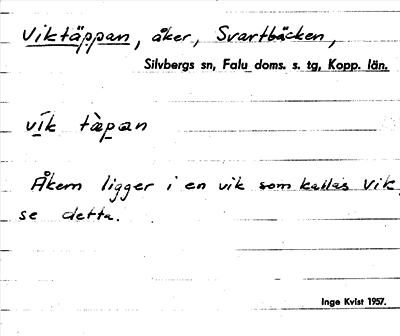 Viktäppan, åker, Svartbäcken,
Silvbergs sn, Falu doms. s. tg, Kopp. län.
vík tàpan
Åkern ligger i en vik som kallas Vik,
se detta.
Inge Kvist 1957.